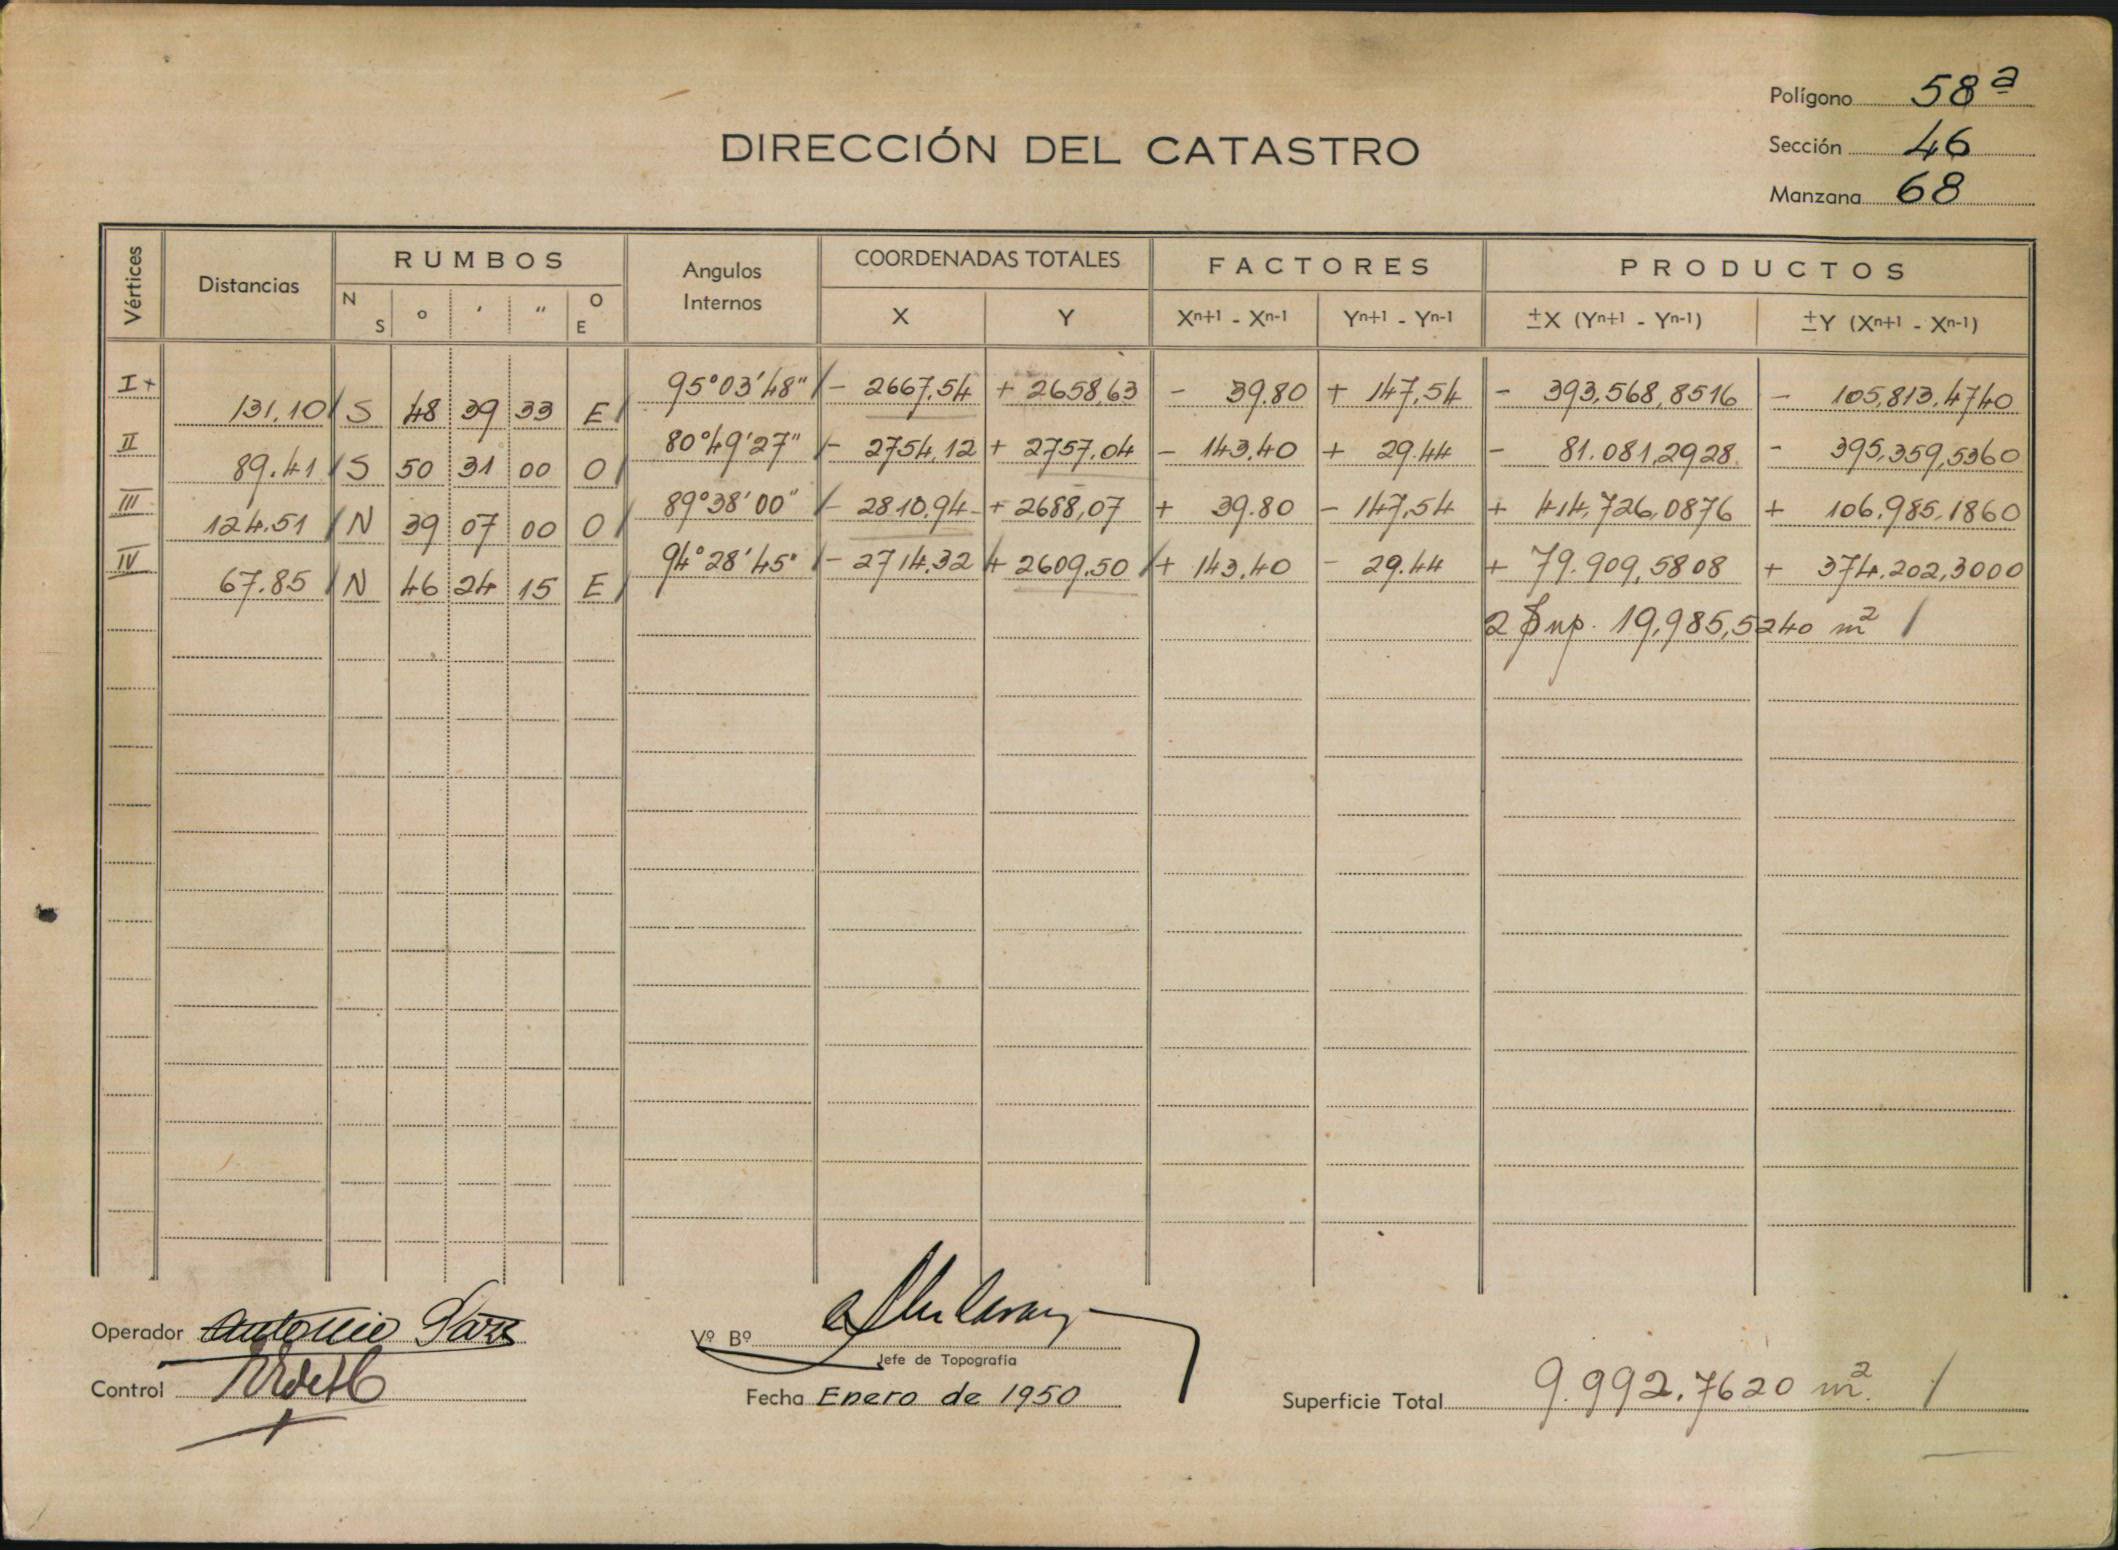 Polígono 58ª
DIRECCIÓN DEL CATASTRO
Sección 46
Manzana 68
Vértices Distancias RUMBOS Angulos Internos COORDENADAS TOTALES FACTORES PRODUCTOS
N S ° ' " O E X Y Xn+1 - Xn-1 Yn+1 - Yn-1 ±X (Yn+1 - Yn-1) ±Y (Xn+1 - Xn-1)
I+ 95°03'48" - 2667,54 + 2658,63 - 39.80 + 147,54 - 393,568,8516 - 105,813,4740
131,10 S 48 39 33 E
II 80°49'27" - 2754,12 + 2757,04 - 143,40 + 29.44 - 81.081,2928 - 395,359,5360
89.41 S 50 31 00 O
III 89°38'00" - 2810,94 + 2688,07 + 39.80 - 147,54 + 414,726,0876 + 106,985,1860
124.51 N 39 07 00 O
IV 94°28'45" - 2714,32 + 2609,50 + 143,40 - 29.44 + 79.909,5808 + 374,202,3000
67.85 N 46 24 15 E
2 Sup. 19,985,5240 m²
Operador Antonio
Vº Bº
Jefe de Topografía
Control
Fecha Enero de 1950
Superficie Total 9.992,7620 m²